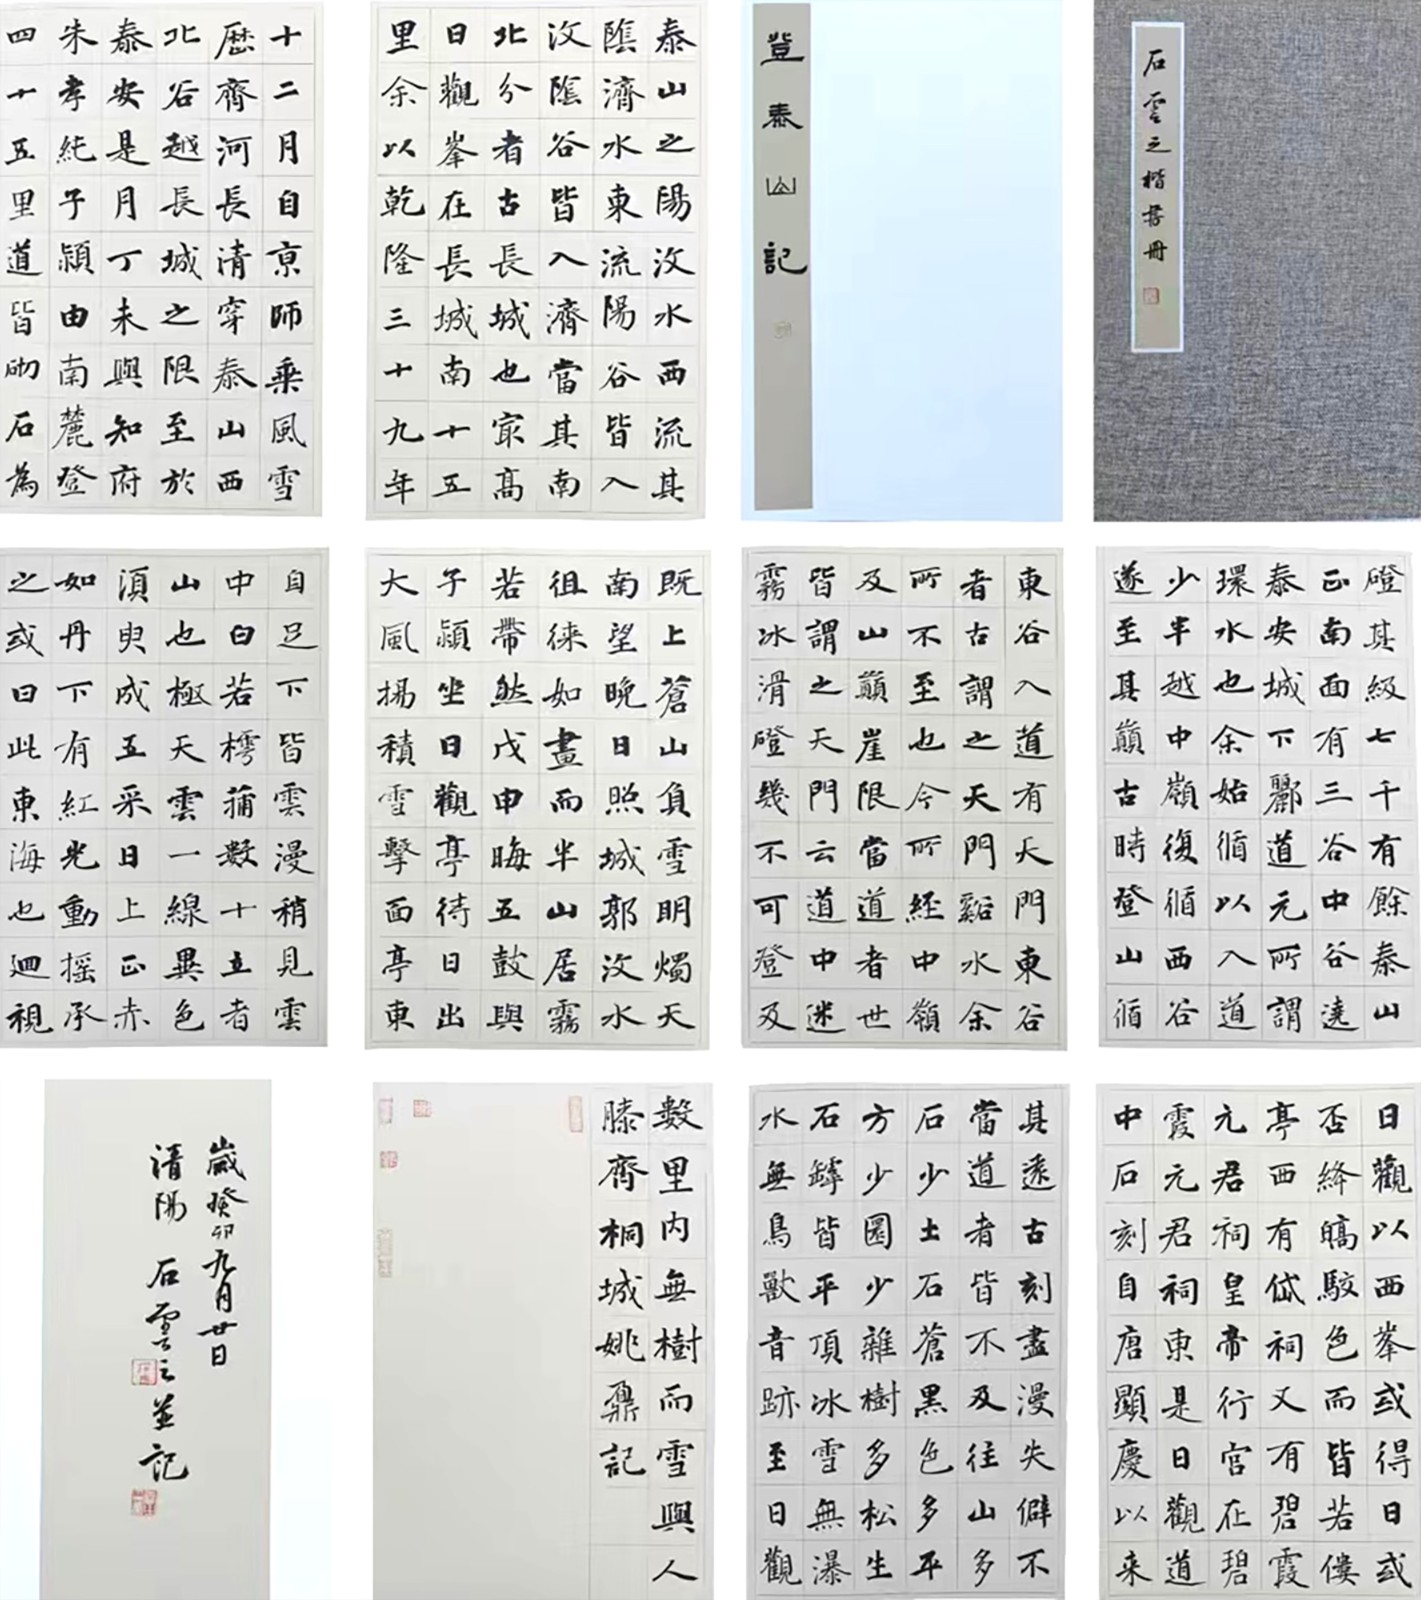 石雲之楷書冊
登泰山記
泰山之陽汶水西流其
陰濟水東流陽谷皆入
汶陰谷皆入濟當其南
北分者古長城也冣高
日觀峯在長城南十五
里余以乾隆三十九年
十二月自京師乘風雪
歷齊河長清穿泰山西
北谷越長城之限至於
泰安是月丁未與知府
朱孝純子潁由南麓登
四十五里道皆砌石為
磴其級七千有餘泰山
正南面有三谷中谷遶
泰安城下酈道元所謂
環水也余始循以入道
少半越中嶺復循西谷
遂至其巔古時登山循
東谷入道有天門東谷
者古謂之天門谿水余
所不至也今所經中嶺
及山巔崖限當道者世
皆謂之天門云道中迷
霧冰滑磴幾不可登及
既上蒼山負雪明燭天
南望晚日照城郭汶水
徂徠如畫而半山居霧
若帶然戊申晦五鼓與
子潁坐日觀亭待日出
大風揚積雪擊面亭東
自足下皆雲漫稍見雲
中白若樗蒱數十立者
山也極天雲一線異色
須臾成五采日上正赤
如丹下有紅光動搖承
之或曰此東海也迴視
日觀以西峯或得日或
否絳皜駁色而皆若僂
亭西有岱祠又有碧霞
元君祠皇帝行宮在碧
霞元君祠東是日觀道
中石刻自唐顯慶以来
其遠古刻盡漫失僻不
當道者皆不及往山多
石少土石蒼黑色多平
方少圜少雜樹多松生
石罅皆平頂冰雪無瀑
水無鳥獸音跡至日觀
數里內無樹而雪與人
膝齊桐城姚鼐記
歲癸卯九月廿日
清陽 石雲之並記